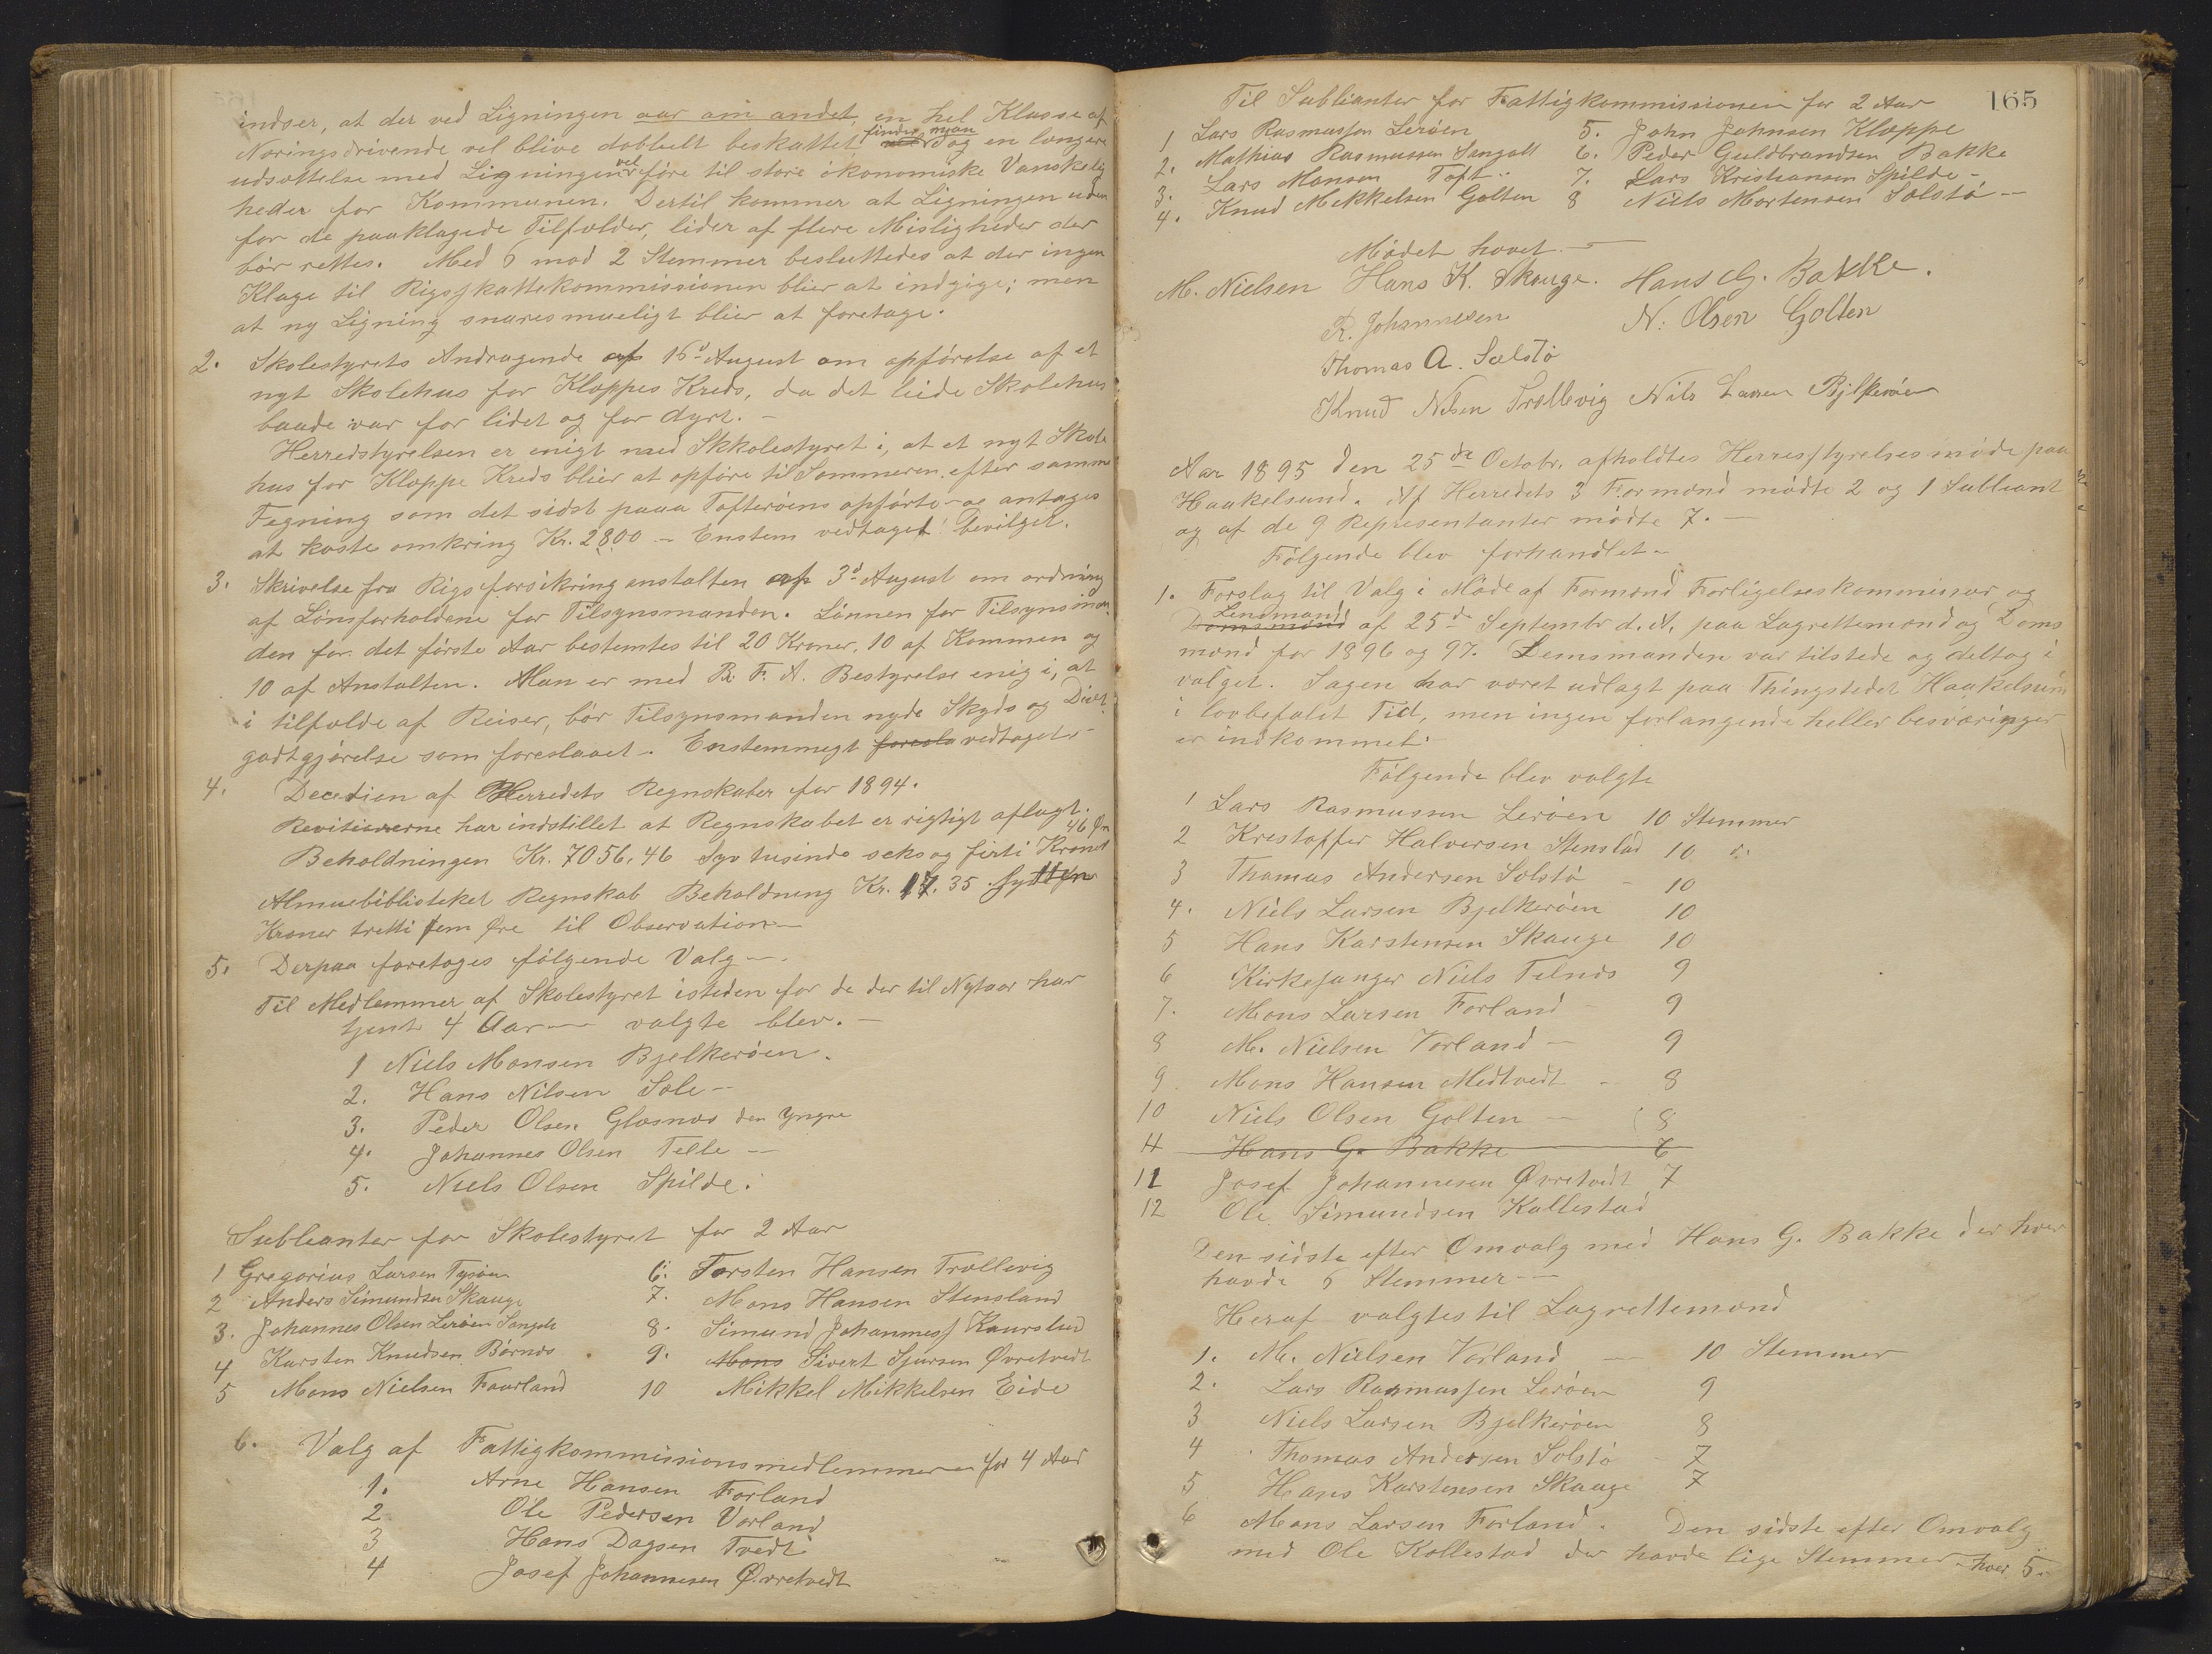 indser, at der ved Ligningen aar om andet, en hel Klasse af
Næringsdrivende vel blive dobbelt beskattet finder man og en længere
udsættelse med Ligningen vel føre til store økonomiske Vanskelig
heder for Kommunen. Dertil kommer at Ligningen uden
for de paaklagede Tilfælder, lider af flere Misligheder der
bør rettes. Med 6 mod 2 Stemmer besluttedes at der ingen
Klage til Rigsskattekommissionen blier at indgige; men
at ny Ligning snaresmueligt blier at foretage.
2. Skolestyrets Andragende af 16d August om opførelse af et
nyt Skolehus for Kloppes Kreds, da det leide Skolehus
baade var for lidet og for dyrt. -
Herredstyrelsen er enigt med Skkolestyret i, at et nyt Skole
hus for Kloppe Kreds blier at opføre til Sommeren, efter samme
Tegning som det sidst paaa Tofterøens opførte - og antages
at koste omkring Kr. 2800 - Enstem vedtaget! Bevilget.
3. Skrivelse fra Rigsforsikringanstalten af 3d August om ordning
af Lønsforholdene for Tilsynsmanden. Lønnen for Tilsynsmæn
den for det første Aar bestemtes til 20 Kroner, 10 af Kommen og
10 af Anstalten. Man er med R. F. A. Bestyrelse enig i, at
i tilfælde af Reiser, bør Tilsynsmanden nyde Skyds og Diæt
godtgjørelse som foreslaaet. Enstemmegt foreslo vedtaget -
4. Decetien af Herredets Regnskaber for 1894.
Revitiorerne har indstillet at Regnskabet er rigtigt aflagt.
Beholdningen Kr. 7056,46 Syv tusinde seksog firti Kroner 46 Øre
Almuebiblioteket Regnskab Beholdning Kr. 17.35 Sytten
Kroner tretti fem Øre til Observation -
5. Derpaa foretoges følgende Valg -
Til Medlemmer af Skolestyret isteden for de der til Nytaar har
tjent 4 Aar - valgte blev. -
1 Niels Monsen Bjelkerøen.
2. Hans Nilsen Sæle -
3. Peder Olsen Glæsnæs den Yngre
4. Johannes Olsen Telle -
5. Niels Olsen Spilde.
Subleanter for Skolestyret for 2 Aar
1 Gregorius Larsen Tysøen
2 Anders Simundsen Skauge
3. Johannes Olsen Lerøen Sangolt
4 Karsten Knudsen Børnæs
5 Mons Nielsen Faarland
6. Torsten Hansen Trollevig
7. Mons Hansen Stensland
8. Simund Johanness Kaursland
9. Mons Sivert Sjursen Øvretvedt
10 Mikkel Mikkelsen Eide
6. Valg af Fattigkommissionsmedlemmer for 4 Aar
1. Arne Hansen Forland
2. Ole Pedersen Vorland
3 Hans Dagsen Tvedt
4 Josef Johannesen Øvretvedt
165
Til Sublianter for Fattigkommissionen for 2 Aar
1 Lars Rasmussen Lerøen
2. Mathias Rasmussen Sangolt
3. Lars Monsen Toft
4. Knud Mikkelsen Golten
5. John Johnsen Kloppe
6. Peder Guldbrandsen Bakke
7. Lars Kristiansen Spilde -
8 Niels Mortensen Solstø -
Mødet hævet -
M. Nielsen Hans K. Skauge. Hans G. Bakke.
R. Johannesen N. Olsen Golten
Thomas A. Sælstø
Knud Nilsen Trollevig Nils Larsen Bjelkerøen
Aar 1895 den 25de Octobr. afholdtes Herresstyrelsesmøde paa
Haakelsund. Af Herredets 3 Formænd mødte 2 og 1 Subleant
og af de 9 Representanter mødte 7. -
Følgende blev forhandlet -
1. Forslag til Valg i Møde af Formænd Forligelseskommissær og
Lensmand Domsmænd af 25de Septembr d. A. paa Lagrettemænd og Doms
mænd for 1896 og 97. Lensmanden var tilstede og deltog i
valget. Sagen har været udlagt paa Thingstedet Haakelsund
i lovbefalet Tid, men ingen forlangende heller besværinger
er indkommet.
Følgende blev valgte
1 Lars Rasmussen Lerøen 10 Stemmer
2 Krestoffer Halvorsen Stensland 10 d:
3 Thomas Andersen Solstø - 10
4. Niels Larsen Bjelkerøen 10
5 Hans Karstensen Skauge 10
6 Kirkesanger Niels Telnæs 9
7. Mons Larsen Forland - 9
8 M. Nielsen Vorland - 9
9. Mons Hansen Midtvedt - 8
10 Niels Olsen Golten - 8
11 Hans G. Bakke 6
11 Josef Johannesen Øvretvedt 7
12 Ole Simundsen Kallestad
Den sidste efter Omvalg med Hans G. Bakke der hver
havde 6 Stemmer -
Heraf valgtes til Lagrettemænd
1. M. Nielsen Vorland - 10 Stemmer
2. Lars Rasmussen Lerøen 9
3 Niels Larsen Bjelkerøen 8
4 Thomas Andersen Solstø - 7
5 Hans Karstensen Skauge 7
6 Mons Larsen Forland. Den sidste efter Omvalg
med Ole Kollestad der havde lige Stemmer - hver 5.